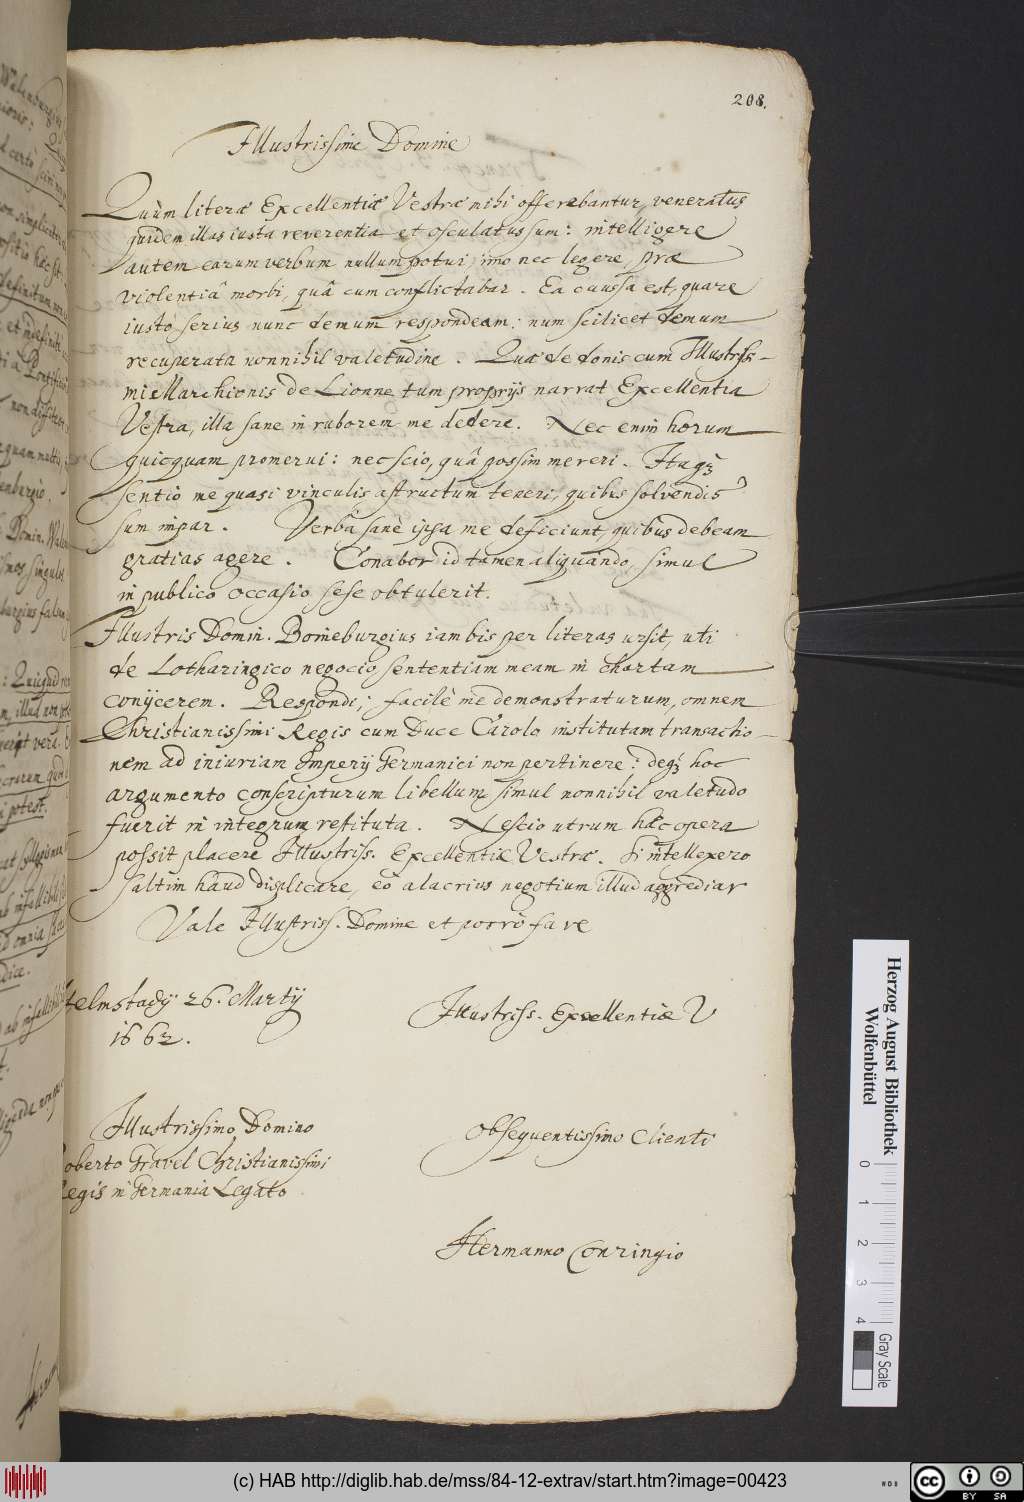 208.
Illustrissime Domine
Quùm literæ Excellentiæ Vestræ mihi offerebantur, veneratus
quidem illas iusta reverentia et osculatus sum: intelligere
autem earum verbum nullum potui, imo nec legere, præ
violentiâ morbi, quâ cum conflictabar. Ea caussa est, quare
iusto serius nunc demum respondeam: num scilicet demum
recuperata nonnihil valetudine. Quæ de donis cum Illustriss-
mi Marchionis de Lionne tum proprijs narrat Excellentia
Vestra, illa sane in ruborem me dedere. Nec enim horum
quicquam promerui: nec scio, quâ possim mereri. Itaq;
sentio me quasi vinculis astrictum teneri, quibus solvendis
sum impar. Verba sanè ipsa me deficiunt, quibus debeam
gratias agere. Conabor id tamen aliquando, simul
in publico occasio sese obtulerit.
Illustris Domin. Boineburgius iam bis per literas ursit, uti
de Lotharingico negocio sententiam meam in chartam
conijcerem. Respondi; facilè me demonstraturum, omnem
Christianissimi Regis cum Duce Carolo institutam transactio-
nem ad iniuriam Imperij Germanici non pertinere: deq; hoc
argumento conscripturum libellum simul nonnihil valetudo
fuerit in integrum restituta. Nescio utrum hæc opera
possit placere Illustriss. Excellentiæ Vestræ. Si intellexero
saltim haud displicare, eò alacrius negotium illud aggrediar
Vale Illustriss. Domine et porrò fave
Helmstadij 26. Martij
1662.
Illustriss. Excellentiæ V
Illustrissimo Domino
Roberto Gravel Christianissimi
Regis in Germania Legato
Obsequentissimo Clienti
Hermanno Conringio
Herzog August Bibliothek
Wolfenbüttel
0 1 2 3 4
Gray Scale
(c) HAB http://diglib.hab.de/mss/84-12-extrav/start.htm?image=00423
cc BY SA